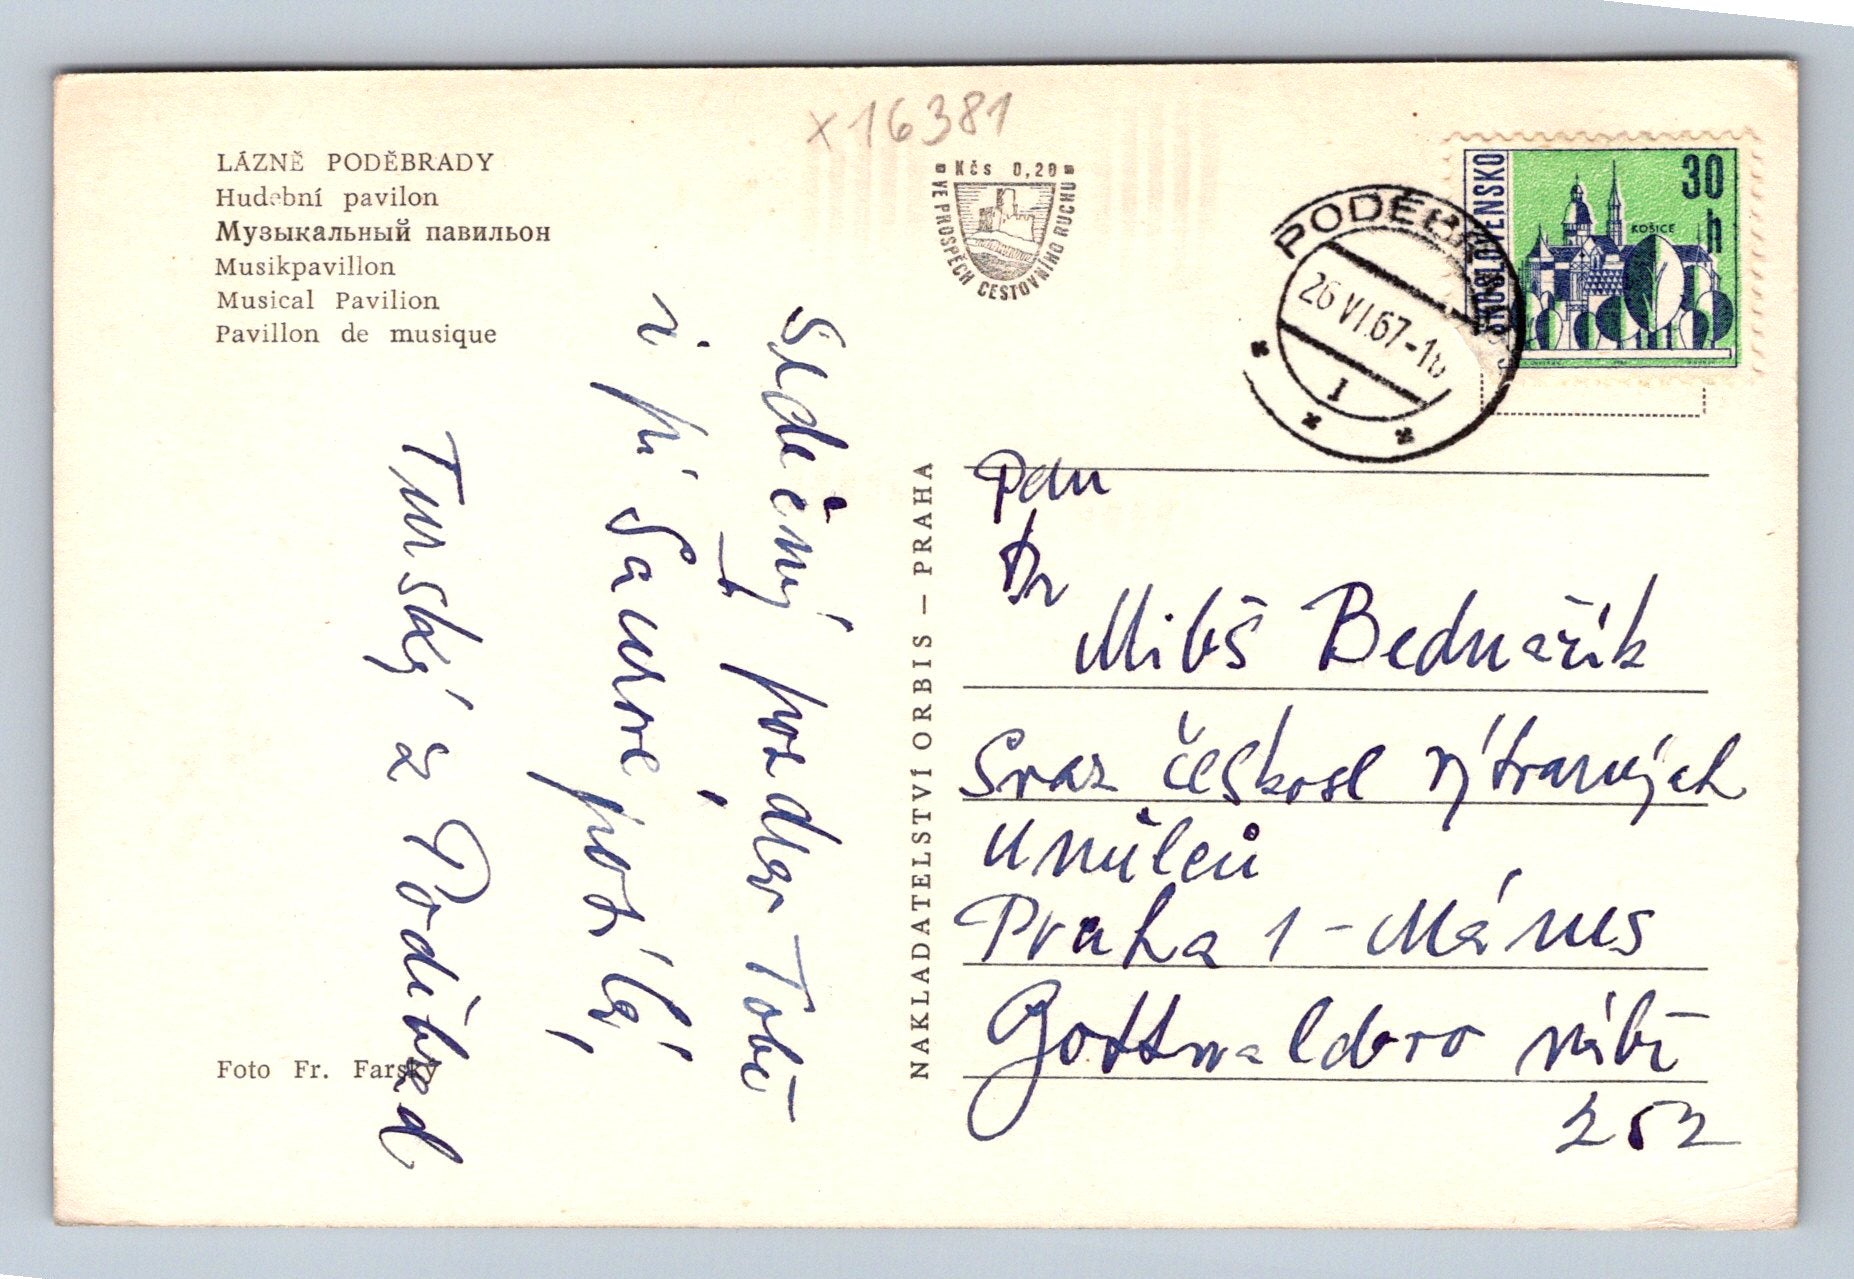 x16381
LÁZNĚ PODĚBRADY
Hudební pavilon
Музыкальный павильон
Musikpavillon
Musical Pavilion
Pavillon de musique
Kčs 0,20
VE PROSPĚCH CESTOVNÍHO RUCHU
PODĚBR
26 VI.67-1
1
ČESKOSLOVENSKO
30
h
KOŠICE
Srdečný pozdrav Tobě
i pí
Turský z Poděbrad
Foto Fr. Farský
NAKLADATELSTVÍ ORBIS – PRAHA
Pan
Dr
Miloš Bednařík
Svaz českosl výtvarných
umělců
Praha 1 - Mánes
Gottwaldovo nábř
252